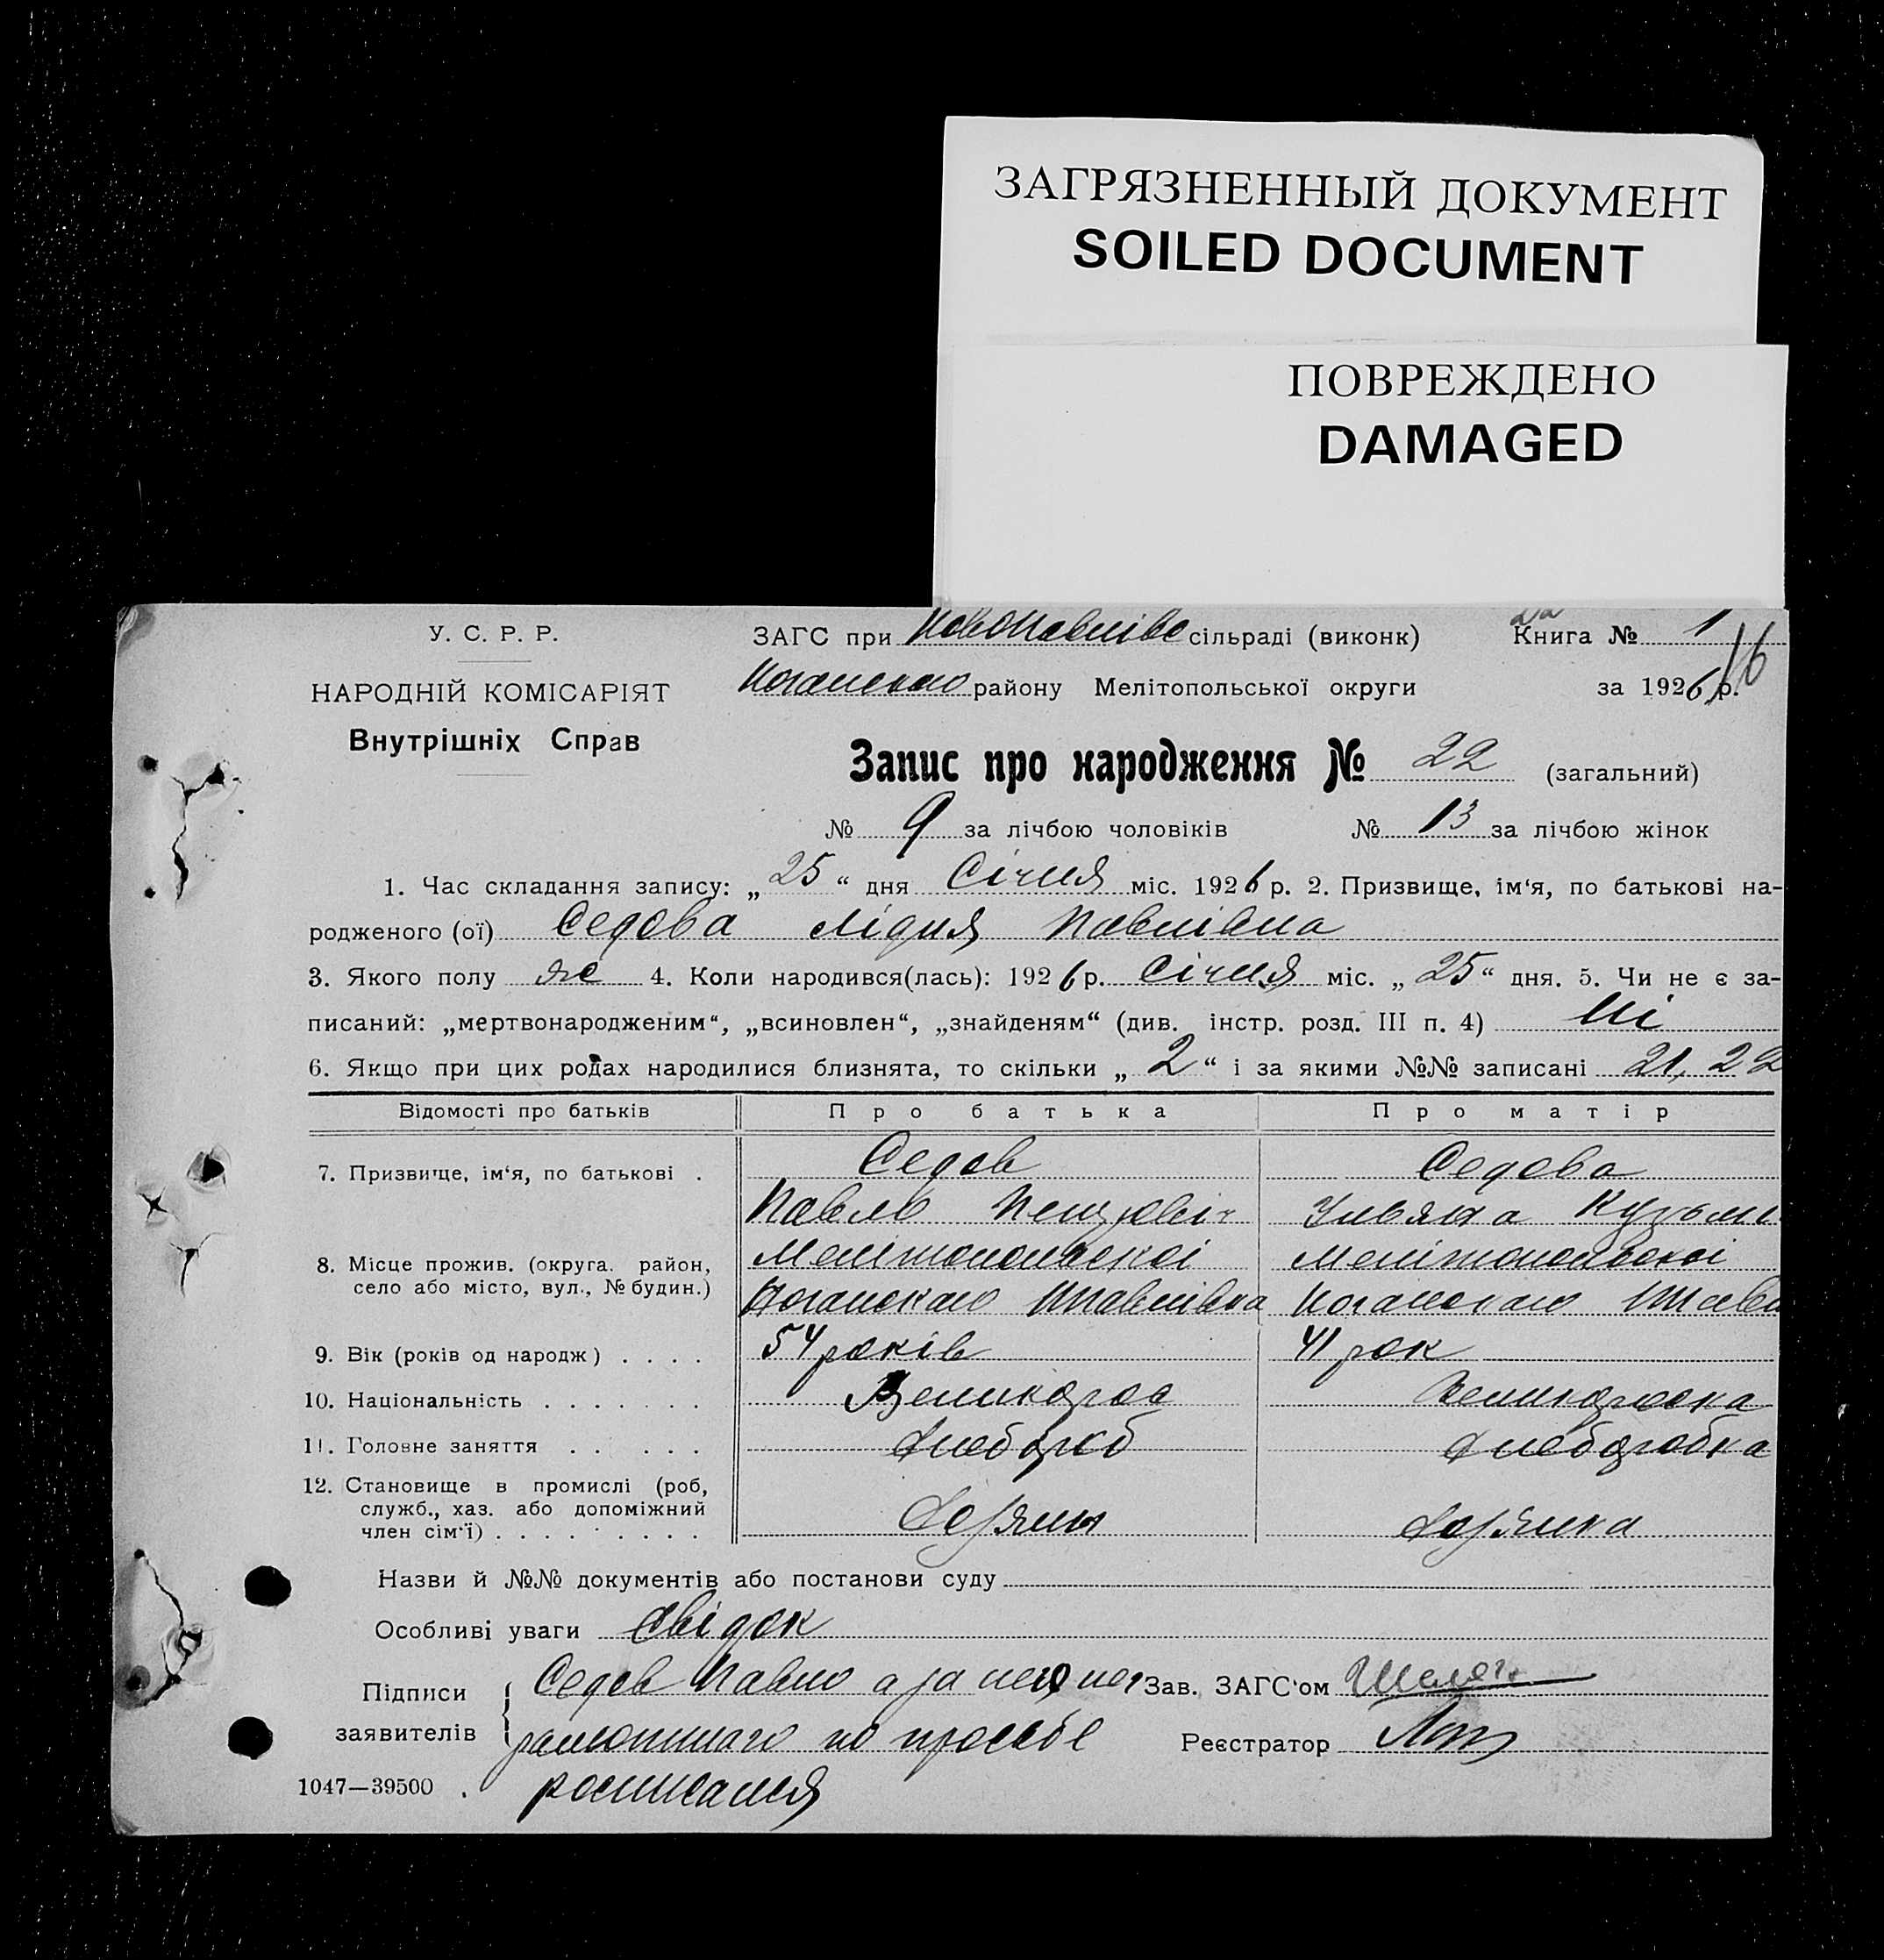 ЗАГРЯЗНЕННЫЙ ДОКУМЕНТ
SOILED DOCUMENT
ПОВРЕЖДЕНО
DAMAGED
У. С. Р. Р.
НАРОДНІЙ КОМІСАРІЯТ
Внутрішніх Справ
ЗАГС при сільраді (виконк) Книга № 1
району Мелітопольської округи за 1926 р. 16
Запис про народження № 22 (загальний)
№ 9 за лічбою чоловіків № 13 за лічбою жінок
1. Час складання запису: „ 25 “ дня Січня міс. 1926 р. 2. Призвище, ім‘я, по батькові на-
родженого (ої) Седова Лідия Павлівна
3. Якого полу же 4. Коли народився(лась): 1926 р. Січня міс. „ 25 “ дня. 5. Чи не є за-
писаний: „мертвонародженим“, „всиновлен“, „знайденям“ (див. інстр. розд. III п. 4) Ні
6. Якщо при цих родах народилися близнята, то скільки „ 2 “ і за якими №№ записані 21, 22
Відомості про батьків Про батька Про матір
7. Призвище, ім‘я, по батькові . Седов Седова
Павло Кузьми
8. Місце прожив. (округа. район, Мелітопольскоі Мелітопольскоі
село або місто, вул., № будин.)
9. Вік (років од народж) . . . . 54 років 41 рок
10. Національність . . . . . . . Великорос Великороска
11. Головне заняття . . . . . Хлебороб Хлеборобка
12. Становище в промислі (роб,
служб., хаз. або допоміжний
член сім‘ї) . . . . . . . . . Хозяин Хозяика
Назви й №№ документів або постанови суду
Особливі уваги свідок
Підписи Седов Павло а за него нег Зав. ЗАГС‘ом
заявителів рамотнаго по просьбе Реєстратор
1047—39500 . росписался